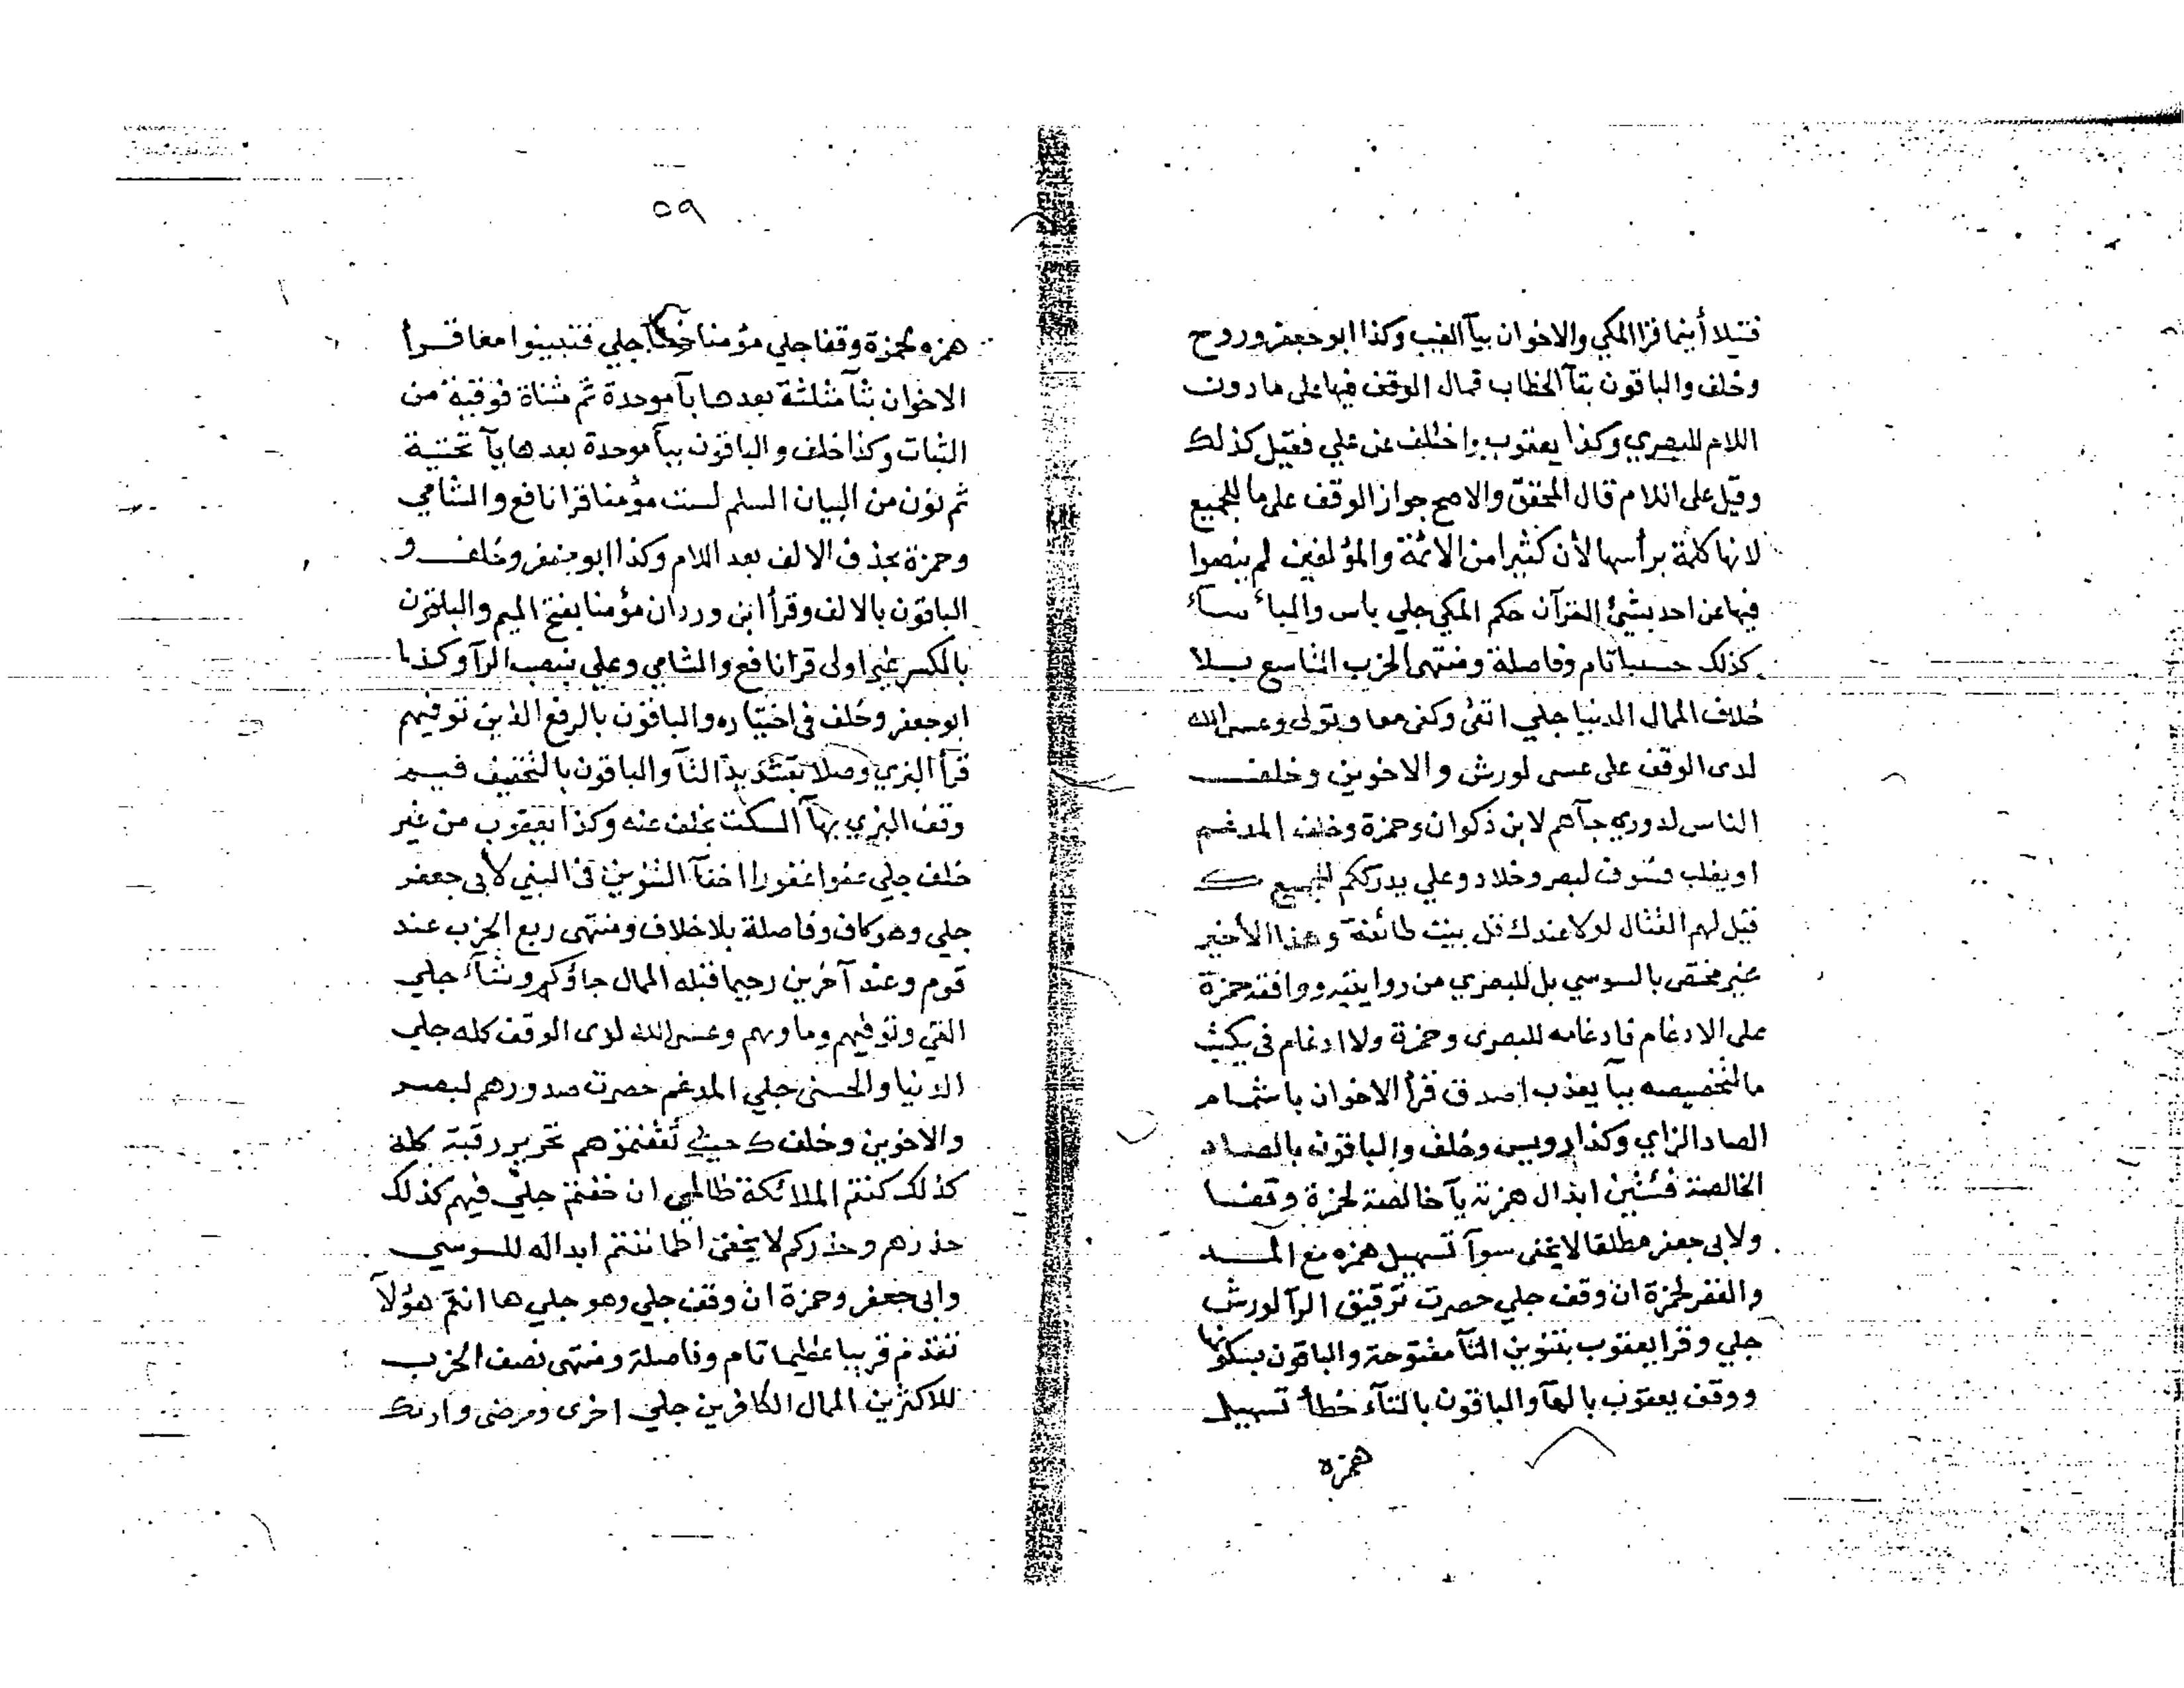 فتيلا أينما قرا المكي والاخوان بيآ الغيب وكذا ابو جعفر وروح
وخلف والباقون بتآ الخطاب فمال الوقف فيها على ما دون
اللام للبصري وكذا يعقوب واختلف عن علي فقيل كذلك
وقيل على اللام قال المحقق والاصح جواز الوقف على ما للجميع
لانها كلمة برأسها لأن كثيرا من الائمة والمؤلفين لم ينصوا
فيها عن احد بشئ القرآن حكم المكي جلي باس والباء سآء
كذلك حسيبا تام وفاصلة ومنتهى الحزب التاسع بلا
خلاف الممال الدنيا جلي اتقى وكفى معا وتولى وعسى الله
لدى الوقف على عسى لورش والاخوين وخلف
الناس لدوري جآهم لابن ذكوان وحمزة وخلف المدغم
او يغلب فسوف لبصر وخلاد وعلي يدرككم للجميع ك
قيل لهم القتال لولا عندك قل بيت طائفة وهذا الأخير
غير مختص بالسوسي بل للبصري من روايتيه ووافقه حمزة
على الادغام فادغامه للبصرى وحمزة ولا ادغام في يكتب
ما لتخصيصه ببآ يعذب اصدق قرأ الاخوان باشمام
الصاد الزاي وكذا رويس وخلف والباقون بالصاد
الخالصة فئتين ابدال همزته يآ خالصة لحمزة وقفا
ولابي جعفر مطلقا لا يخفى سوآ تسهيل همزه مع المد
والقصر لحمزة ان وقف جلي حصرت ترقيق الرآ لورش
جلي وقرا يعقوب بتنوين التآ مفتوحة والباقون بسكونها
ووقف يعقوب بالهآ والباقون بالتآء خطأ تسهيل
همزه
٥٩
همزه لحمزة وقفا جلي مؤمنا خطآ جلي فتبينوا معا قرأ
الاخوان بثآ مثلثة بعدها بآ موحدة ثم مثناة فوقية من
الثبات وكذا خلف والباقون ببآ موحدة بعدها يآ تحتية
ثم نون من البيان السلم لست مؤمنا قرا نافع والشامي
وحمزة بحذف الالف بعد اللام وكذا ابو جعفر وخلف و
الباقون بالالف وقرأ ابن وردان مؤمنا بفتح الميم والباقون
بالكسر غير اولى قرا نافع والشامي وعلي بنصب الرآ وكذا
ابو جعفر وخلف في اختياره والباقون بالرفع الذين توفيهم
قرأ البزي وصلا بتشديد التآ والباقون بالتخفيف فيم
وقف البزي بهآ السكت بخلف عنه وكذا يعقوب من غير
خلف جلي عفوا غفورا اخفآ التنوين في الببني لأبى جعفر
جلي وهو كاف وفاصلة بلا خلاف ومنتهى ربع الحزب عند
قوم وعند آخرين رحيما قبله الممال جاؤكم وشآء جلي
القى وتوفيهم وماويهم وعسى الله لدى الوقف كله جلي
الدنيا والحسنى جلي المدغم حصرت صدورهم لبصر
والاخوين وخلف ك حيث ثقفتموهم تحرير رقبة كله
كذلك كنتم الملائكة ظالمي ان خفتم جلي فيهم كذلك
حذرهم وحذركم لا يخفى اطماننتم ابداله للسوسي
وابي جعفر وحمزة ان وقف جلي وهو جلي ها انتم هؤلآ
تقدم قريبا عظيما تام وفاصلة ومنتهى نصف الحزب
للاكثرين الممال الكافرين جلي اخرى ومرضى واريك